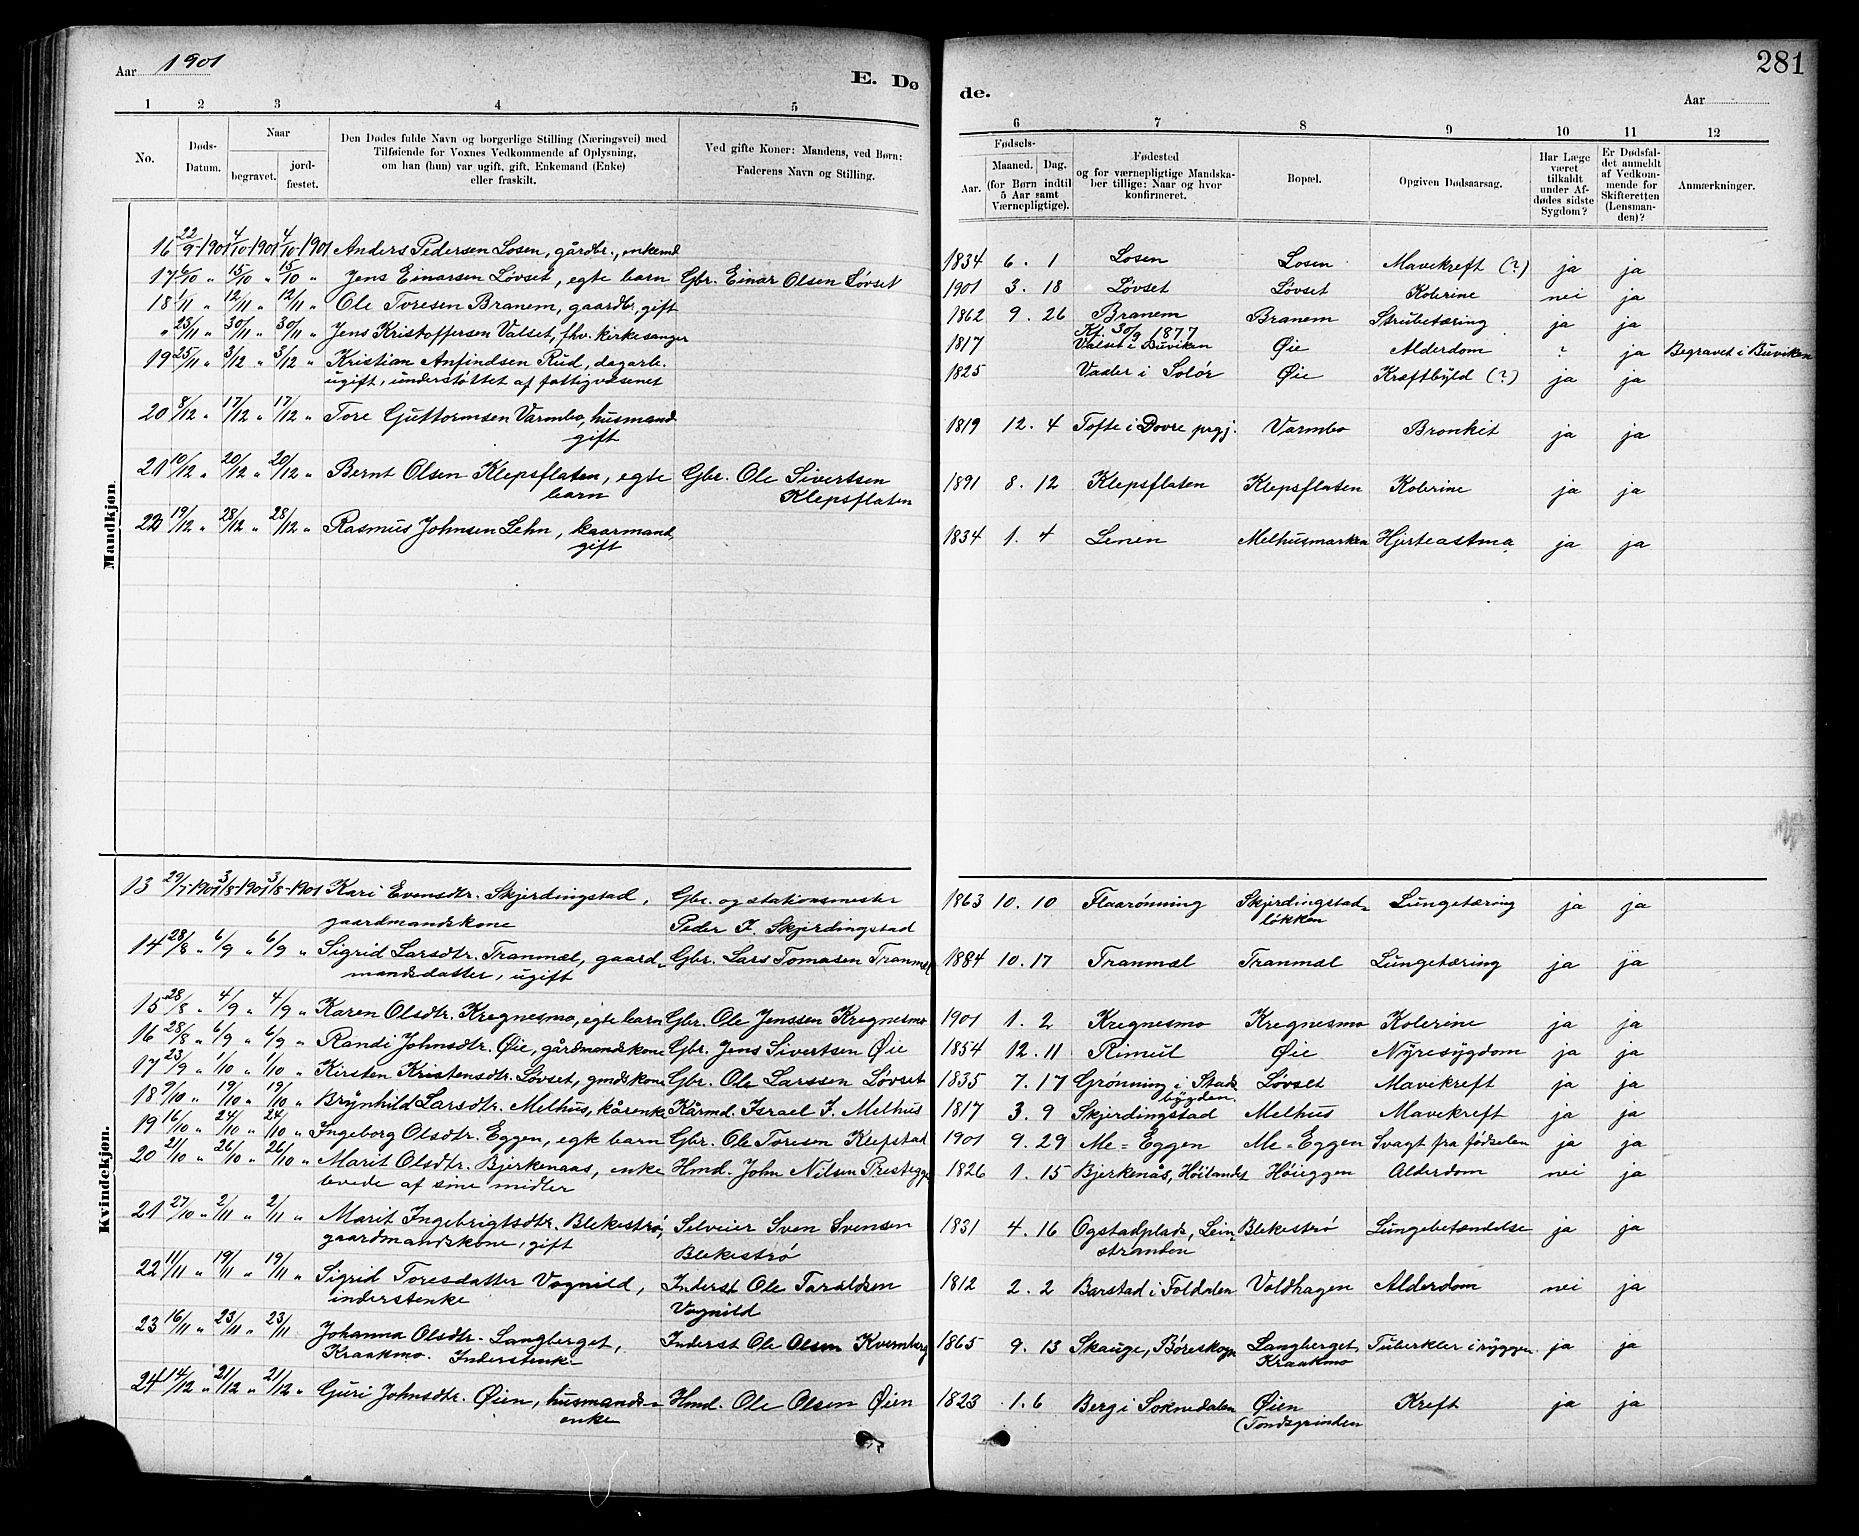 Aar 1901
E. Dø
1 2 3 4 5
No.
Døds-
Datum.
Naar
begravet.
jord-
fæstet.
Den Dødes fulde Navn og borgerlige Stilling (Næringsvei) med
Tilføiende for Voxnes Vedkommende af Oplysning,
om han (hun) var ugift, gift, Enkemand (Enke)
eller fraskilt.
Ved gifte Koner: Mandens, ved Børn:
Faderens Navn og Stilling.
Mandkjøn.
16 22/9-1901 4/10-1901 4/10-1901 Anders Pedersen Losen, gårdbr., enkemd
17 6/10 " 15/10 " 15/10 " Jens Einarsen Løvset, egte barn Gbr. Einar Olsen Løvset
18 1/11 " 12/11 " 12/11 " Ole Toresen Branem, gaardbr., gift
" 23/11 " 30/11 " 30/11 " Jens Kristoffersen Valset, fhv. kirkesanger
19 25/11 " 3/12 " 3/12 " Kristian Anfindsen Rud, dagarb.
ugift, understøttet af fattigvæsenet
20 8/12 " 17/12 " 17/12 " Tore Guttormsen Varmbo, husmand
gift
21 10/12 " 20/12 " 20/12 " Bernt Olsen Klepsflaten, egte Gbr. Ole Sivertsen
barn Klepsflaten
22 19/12 " 28/12 " 28/12 " Rasmus Johnsen Lehn, kaarmand,
gift
Kvindekjøn.
13 29/7-1901 3/8-1901 3/8-1901 Kari Evensdtr. Skjerdingstad, Gbr. og stationsmester
gaardmandskone Peder I. Skjerdingstad
14 28/8 " 6/9 " 6/9 " Sigrid Larsdtr. Tranmæl, gaard- Gbr. Lars Tomasen Tranmæl
mandsdatter, ugift
15 28/8 " 4/9 " 4/9 " Karen Olsdtr. Kregnesmo, egte barn Gbr. Ole Jenssen Kregnesmo
16 28/8 " 6/9 " 6/9 " Randi Johnsdtr. Øie, gårdmandskone Gbr. Jens Sivertsen Øie
17 23/9 " 1/10 " 1/10 " Kirsten Kristensdtr. Løvset, gmdskone Gbr. Ole Larssen Løvset
18 9/10 " 19/10 " 19/10 " Brynhild Larsdtr. Melhus, kårenke Kårmd. Israel J. Melhus
19 16/10 " 24/10 " 24/10 " Ingeborg Olsdtr. Eggen, egte barn Gbr. Ole Toresen Klefstad
20 21/10 " 26/10 " 26/10 " Marit Olsdtr. Bjerkenaas, enke Hmd. John Nilsen Prestegge
levede af sine midler
21 27/10 " 2/11 " 2/11 " Marit Ingebrigtsdtr. Blekestrø, Selveier Sven Svensen
gaardmandskone, gift Blekestrø
22 11/11 " 19/11 " 19/11 " Sigrid Toresdatter Vognild, Inderst Ole Taraldsen
inderstenke Vognild
23 16/11 " 23/11 " 23/11 Johanna Olsdtr. Langberget, Inderst Ole Olsen Kvernberg
Kraakmo. Inderstenke
24 14/12 " 21/12 " 21/12 " Guri Johnsdtr. Øien, husmands- Hmd. Ole Olsen Øien
enke
281
de.
Aar
6 7 8 9 10 11 12
Fødsels-
Aar.
Maaned. Dag.
(for Børn indtil
5 Aar samt
Værnepligtige).
Fødested
og for værnepligtige Mandska-
ber tillige: Naar og hvor
konfirmeret.
Bopæl.
Opgiven Dødsaarsag.
Har Læge
været
tilkaldt
under Af-
dødes sidste
Sygdom?
Er Dødsfal-
det anmeldt
af Vedkom-
mende for
Skifteretten
(Lensman-
den)?
Anmærkninger.
1834 6. 1 Losen Losen Mavekreft (?) ja ja
1901 3. 18 Løvset Løvset Kolerine nei ja
1862 9. 26 Branem Branem Strubetæring ja ja
Kf. 30/9 1877
1817 Valset i Buviken Øie Alderdom ? ja Begravet i Buviken
1825 Vaaler i Solør Øie Kræftbyld (?) ja ja
1819 12. 4 Tofte i Dovre prgj. Varmbo Bronkit ja ja
1891 8. 12 Klepsflaten Klepsflaten Kolerine ja ja
1834 1. 4 Lenen Melhusmarken Hjerteastma ja ja
1863 10. 10 Flaarønning Skjerdingstad- Lungetæring ja ja
løkken
1884 10. 17 Tranmæl Tranmæl Lungetæring ja ja
1901 1. 2 Kregnesmo Kregnesmo Kolerine ja ja
1854 12. 11 Rimul Øie Nyresygdom ja ja
1835 7. 17 Grønning i Stads- Løvset Mavekreft ja ja
bygden.
1817 3. 9 Skjerdingstad Melhus Mavekreft ja ja
1901 9. 29 Me-Eggen Me-Eggen Svagt fra fødselen ja ja
1826 1. 15 Bjerkenås, Høilandet Høieggen Alderdom nei ja
1831 4. 16 Ogstadplads, Lein- Blekestrø Lungebetændelse ja ja
stranden
1812 2. 2 Barstad i Foldalen Voldhagen Alderdom nei ja
1865 9. 13 Skauge, Børeskogn Langberget, Tuberkler i ryggen ja ja
Kraakmo
1823 1. 6 Berg i Soknedalen Øien Kreft ja ja
(Tondsgrinden